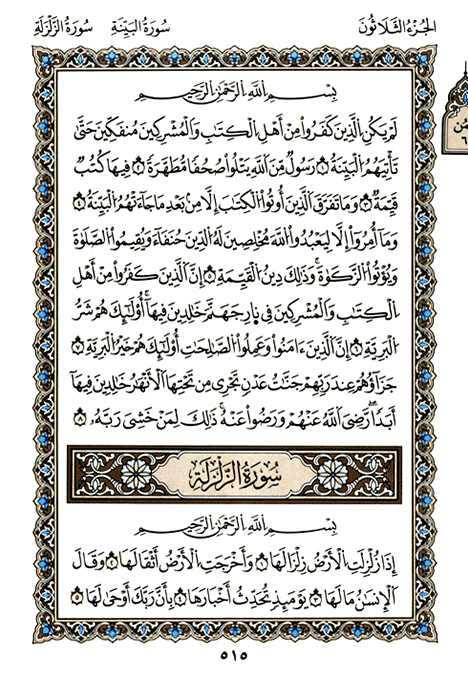 الجُزْءُ الثَّلَاثُونَ سُورَةُ البَيِّنَةِ سُورَةُ الزَّلْزَلَةِ
بِسْمِ اللَّهِ الرَّحْمَٰنِ الرَّحِيمِ
لَمْ يَكُنِ الَّذِينَ كَفَرُوا مِنْ أَهْلِ الْكِتَٰبِ وَالْمُشْرِكِينَ مُنفَكِّينَ حَتَّىٰ
تَأْتِيَهُمُ الْبَيِّنَةُ ١ رَسُولٌ مِّنَ اللَّهِ يَتْلُوا صُحُفًا مُّطَهَّرَةً ٢ فِيهَا كُتُبٌ
قَيِّمَةٌ ٣ وَمَا تَفَرَّقَ الَّذِينَ أُوتُوا الْكِتَٰبَ إِلَّا مِنۢ بَعْدِ مَا جَآءَتْهُمُ الْبَيِّنَةُ ٤
وَمَآ أُمِرُوٓا إِلَّا لِيَعْبُدُوا اللَّهَ مُخْلِصِينَ لَهُ الدِّينَ حُنَفَآءَ وَيُقِيمُوا الصَّلَوٰةَ
وَيُؤْتُوا الزَّكَوٰةَ ۚ وَذَٰلِكَ دِينُ الْقَيِّمَةِ ٥ إِنَّ الَّذِينَ كَفَرُوا مِنْ أَهْلِ
الْكِتَٰبِ وَالْمُشْرِكِينَ فِي نَارِ جَهَنَّمَ خَٰلِدِينَ فِيهَآ ۚ أُولَٰٓئِكَ هُمْ شَرُّ
الْبَرِيَّةِ ٦ إِنَّ الَّذِينَ ءَامَنُوا وَعَمِلُوا الصَّٰلِحَٰتِ أُولَٰٓئِكَ هُمْ خَيْرُ الْبَرِيَّةِ ٧
جَزَآؤُهُمْ عِندَ رَبِّهِمْ جَنَّٰتُ عَدْنٍ تَجْرِي مِن تَحْتِهَا الْأَنْهَٰرُ خَٰلِدِينَ فِيهَآ
أَبَدًا ۖ رَّضِيَ اللَّهُ عَنْهُمْ وَرَضُوا عَنْهُ ۚ ذَٰلِكَ لِمَنْ خَشِيَ رَبَّهُۥ ٨
سُورَةُ الزَّلْزَلَةِ
بِسْمِ اللَّهِ الرَّحْمَٰنِ الرَّحِيمِ
إِذَا زُلْزِلَتِ الْأَرْضُ زِلْزَالَهَا ١ وَأَخْرَجَتِ الْأَرْضُ أَثْقَالَهَا ٢ وَقَالَ
الْإِنسَٰنُ مَا لَهَا ٣ يَوْمَئِذٍ تُحَدِّثُ أَخْبَارَهَا ٤ بِأَنَّ رَبَّكَ أَوْحَىٰ لَهَا ٥
٥١٥